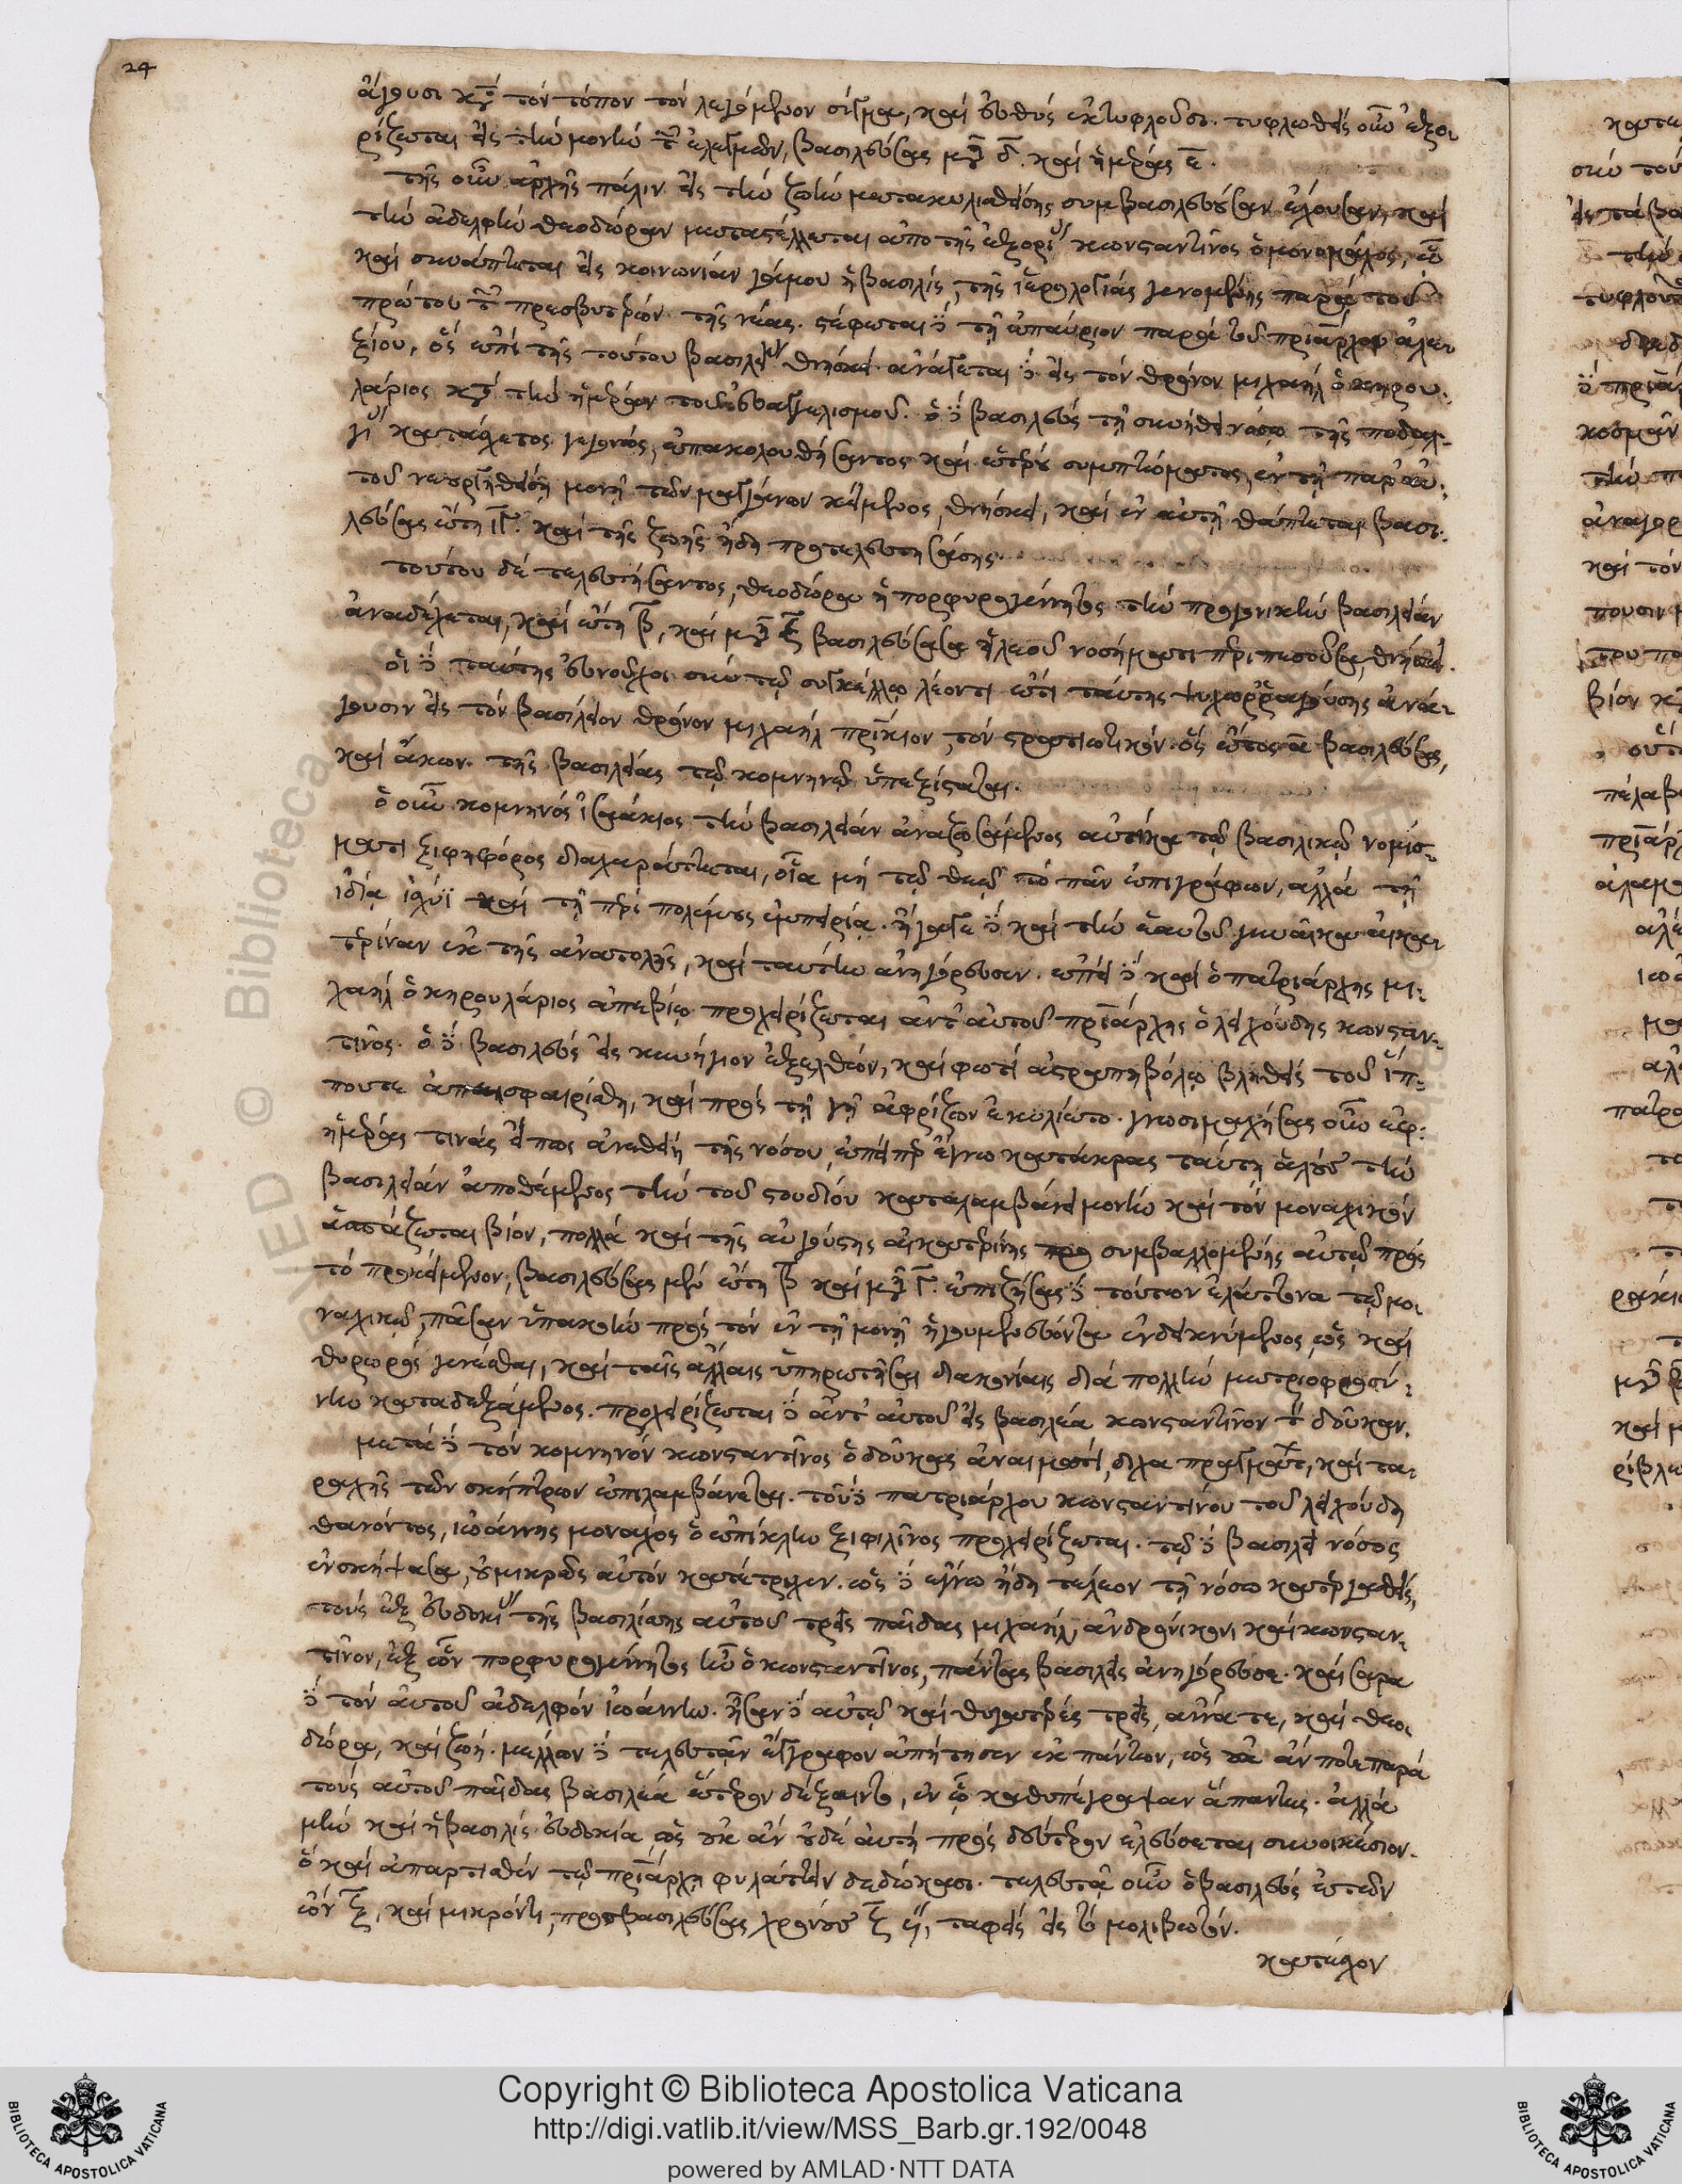 24
ἄγουσι κατὰ τὸν τόπον τὸν λεγόμενον σίγμα, καὶ εὐθὺς ἐκτυφλοῦσι. τυφλωθεὶς οὖν ἐξο
ρίζεται εἰς τὴν μονὴν τῶν ἐλεγμῶν, βασιλεύσας μῆνας δ. καὶ ἡμέρας ε.
τῆς οὖν ἀρχῆς πάλιν εἰς τὴν ζωὴν μετακυλισθείσης συμβασιλεύουσαν ἐχούσης καὶ
τὴν ἀδελφὴν θεοδώραν μεταστέλλεται ἀπὸ τῆς ἐξορίας κωνσταντῖνος ὁ μονομάχος,
καὶ συνάπτεται εἰς κοινωνίαν γάμου ἡ βασιλὶς, τῆς ἱερολογίας γενομένης παρὰ τοῦ
πρώτου τῶν πρεσβυτέρων τῆς νέας. στέφεται δὲ τῇ ἐπαύριον παρὰ τοῦ πριάρχου ἀλε
ξίου, ὃς ἐπὶ τῆς τούτου βασιλείας θνήσκει. ἀνάγεται δὲ εἰς τὸν θρόνον μιχαὴλ ὁ κηρου
λάριος κατὰ τὴν ἡμέραν τοῦ εὐαγγελισμοῦ. ὁ δὲ βασιλεὺς τῇ συνήθει νόσῳ τῆς ποδαλ
γίας κατάσχετος γεγονὼς, ἐπακολουθήσαντος καὶ ἑτέρου συμπτώματος, ἐν τῇ παρ' αὐ
τοῦ νεουργηθείσῃ μονῇ τῶν μαγγάνων κείμενος, θνήσκει, καὶ ἐν αὐτῇ θάπτεται βασι
λεύσας ἔτη ιγ. καὶ τῆς ζωῆς ἤδη προτελευτησάσης.
τούτου δὲ τελευτήσαντος, θεοδώρα ἡ πορφυρογέννητος τὴν προγονικὴν βασιλείαν
ἀναδέχεται, καὶ ἔτη β, καὶ μῆνας βασιλεύσασα εἰλεοῦ νοσήματι περιπεσοῦσα θνήσκει.
οἱ δὲ ταύτης εὐνοῦχοι σὺν τῷ συγκέλλῳ λέοντι ἔτι ταύτης ψυχορραγούσης ἀνά
γουσιν εἰς τὸν βασίλειον θρόνον μιχαὴλ πρίκιον τὸν στρατιωτικόν. ὃς ἔτος α βασιλεύσας,
καὶ ἄκων τῆς βασιλείας τῷ κομνηνῷ ὑπεξίσταται.
ὁ οὖν κομνηνὸς ἰσαάκιος τὴν βασιλείαν ἀναζωσάμενος αὐτίκα τῷ βασιλικῷ νομίσ
ματι ξιφηφόρος διαχαράττεται, οἷα μὴ τῷ θεῷ τὸ πᾶν ἐπιγράφων, ἀλλὰ τῇ
ἰδίᾳ ἰσχύϊ καὶ τῇ περὶ πολέμους ἐμπειρίᾳ. ἤγαγε δὲ καὶ τὴν ἑαυτοῦ γυναῖκα αἰκα
τερίναν ἐκ τῆς ἀνατολῆς, καὶ ταύτην ἀνηγόρευσεν. ἐπεὶ δὲ καὶ ὁ πατριάρχης μι
χαὴλ ὁ κηρουλάριος ἀπεβίω προχειρίζεται ἀντ' αὐτοῦ πριάρχης ὁ λειχούδης κωνσταν
τῖνος. ὁ δὲ βασιλεὺς εἰς κυνήγιον ἐξελθὼν, καὶ φωτὶ ἀστραπηβόλῳ βληθεὶς τοῦ ἵπ
που τε ἀπεσφαιρίσθη, καὶ πρὸς τῇ γῇ ἀφρίζων ἐκυλίετο. γνωσιμαχήσας οὖν ἐφ'
ἡμέρας τινὰς εἴ πως ἀνεθείη τῆς νόσου, ἐπείπερ ἔγνω κατάκρας ταύτῃ ἁλοὺς τὴν
βασιλείαν ἀποθέμενος τὴν τοῦ στουδίου καταλαμβάνει μονὴν καὶ τὸν μοναχικὸν
ἀσπάζεται βίον, πολλὰ καὶ τῆς αὐγούστης αἰκατερίνης συμβαλλομένης αὐτῷ πρὸς
τὸ προκείμενον, βασιλεύσας μὲν ἔτη β καὶ μῆνας γ. ἐπιζήσας δὲ τούτων ἐλάττονα τῷ μο
ναχικῷ, πᾶσαν ὑπακοὴν πρὸς τὸν ἐν τῇ μονῇ ἡγουμενεύοντα ἐνδεικνύμενος, ὡς καὶ
θυρωρὸς γενέσθαι, καὶ ταῖς ἄλλαις ὑπηρετῆσαι διακονίαις διὰ πολλὴν μετριοφροσύ
νην καταδεξάμενος. προχειρίζεται δὲ ἀντ' αὐτοῦ εἰς βασιλέα κωνσταντῖνον τὸν δούκαν.
μετὰ δὲ τὸν κομνηνὸν κωνσταντῖνος ὁ δούκας ἀναιμωτὶ, δίχα πραγμάτων, καὶ τα
ραχῆς τῶν σκήπτρων ἐπιλαμβάνεται. τοῦ δὲ πατριάρχου κωνσταντίνου τοῦ λειχούδη
θανόντος, ἰωάννης μοναχὸς ὁ ἐπίκλην ξιφιλῖνος προχειρίζεται. τῷ δὲ βασιλεῖ νόσος
ἐνσκήψασα, οὐ μικρῶς αὐτὸν κατέτρυχεν. ὡς δὲ ἔγνω ἤδη τέλεον τῇ νόσῳ κατεργασθεὶς,
τοὺς ἐξ εὐδοκίας τῆς βασιλίσσης αὐτοῦ τρεῖς παῖδας μιχαὴλ, ἀνδρόνικον, καὶ κωνσταν
τῖνον, ἐξ ὧν πορφυρογέννητος ἦν ὁ κωνσταντῖνος, πάντας βασιλεῖς ἀνηγόρευσε. καίσαρα
δὲ τὸν αὐτοῦ ἀδελφὸν ἰωάννην. ἦσαν δὲ αὐτῷ καὶ θυγατέρες τρεῖς, ἄννα τε, καὶ θεο
δώρα, καὶ ζωή. μέλλων δὲ τελευτᾶν ἔγγραφον ἀπῄτησεν ἐκ πάντων, ὡς οὐκ ἄν ποτε παρὰ
τοὺς αὐτοῦ παῖδας βασιλέα ἕτερον δέξαιντο, ἐν ᾧ καθυπέγραψαν ἅπαντες. ἀλλὰ
μὴν καὶ ἡ βασιλὶς εὐδοκία, ὡς οὐκ ἂν οὐδὲ αὐτὴ πρὸς δεύτερον ἐλεύσεται συνοικέσιον.
ὃ καὶ ἀπαρτισθὲν τῷ πριάρχῃ φυλάττειν δεδώκασι. τελευτᾷ οὖν ὁ βασιλεὺς ἐτῶν
ὢν ξ, καὶ μικρόν τι, προσβασιλεύσας χρόνους ζ, ταφεὶς εἰς τὸ μολιβωτόν.
κατέσχον
Copyright © Biblioteca Apostolica Vaticana
http://digi.vatlib.it/view/MSS_Barb.gr.192/0048
powered by AMLAD·NTT DATA
BIBLIOTECA APOSTOLICA VATICANA
BIBLIOTECA APOSTOLICA VATICANA